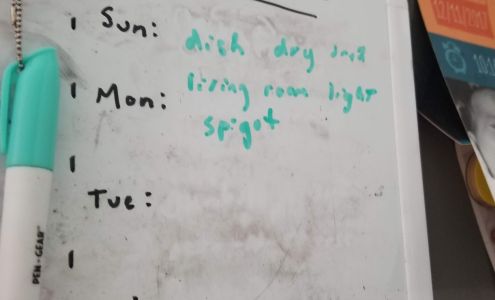 Sun: dish dry
Mon: living room light
spigot
Tue:
PEN+GEAR
12/11/2017